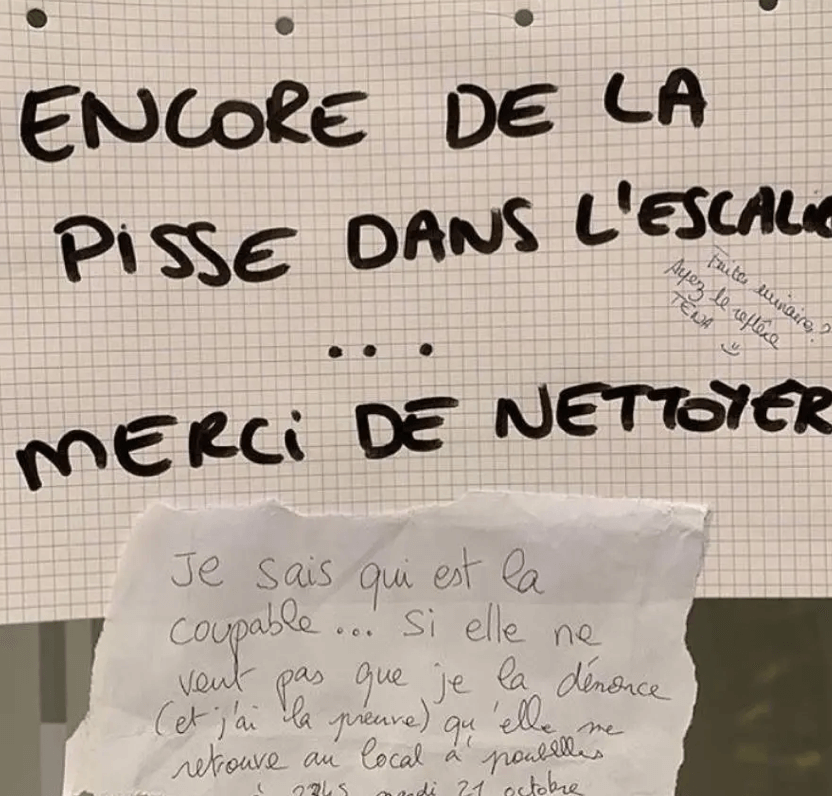 ENCORE DE LA
PISSE DANS L'ESCALIE
Fuites urinaires?
Ayez le réflexe
TENA
...
MERCI DE NETTOYER
Je sais qui est la
coupable... Si elle ne
veut pas que je la dénonce
(et j'ai la preuve) qu'elle me
retrouve au local à poubelles
à mardi 21 octobre